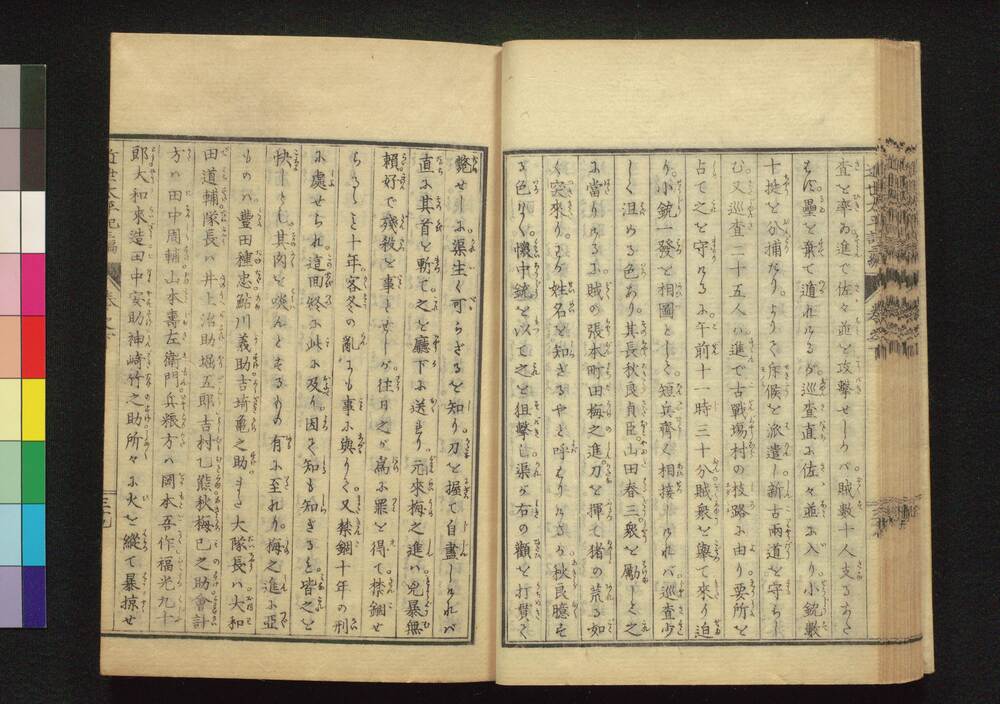 査を率ゐ進で佐々並を攻撃せしかバ賊數十人支る
壘を棄て遁れけるが巡査直に佐々並に入り小銃數
十挺を分捕たり。よりて斥候を派遣し新古兩道を守らし
む又巡査二十五人ハ進で古戰場村の枝路に由り要所を
占て之を守けるに午前十一時三十分賊衆を擧て來り迫
り。小銃一發を相圖として短兵齊く相接しけれバ巡査少
しく沮める色あり。其長秋良貞臣。山田春三衆を勵しと之
に當りけるに賊の張本町田梅之進刀を揮て猪の荒る如
く突來り。わが姓名を知ざるやと呼はりけるが秋良臆せ
る色なく懷中銃を以て之を狙撃し渠が右の顴を打貫て
斃せしに渠生く可らざるを知り刀を握て自盡しけれバ
直に其首を斬て之を廳下に送り。元來梅之進ハ兇暴無
頼好で殘殺を事とせしが往日之が爲に罪を得て禁錮せ
られしを十年客冬の亂にも事に與りて又禁錮十年の刑
に處せられ這回終に此に及り因て知も知ざるも皆之を
快しとし其肉を啖んとするもの有に至れり。梅之進に亞
ものハ豐田穗忠鮎川義助吉埼亀之助また大隊長ハ大和
田道輔隊長ハ井上治助堀五郎吉村七熊秋梅巳之助會計
方ハ田中周輔山本壽左衛門兵粮方ハ岡本吾作福光九十
郎大和來造田中安助神崎竹之助所々に火を縱て暴掠せ
近世太平記二編 卷之下 三十九